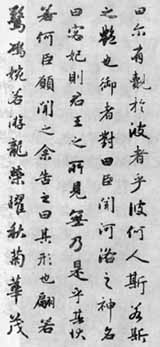 曰尔有覿於彼者乎彼何人斯若斯
之豔也御者對曰臣聞河洛之神名
曰宓妃則君王之所見無乃是乎其狀
若何臣願聞之余告之曰其形也翩若
驚鴻婉若游龍榮曜秋菊華茂